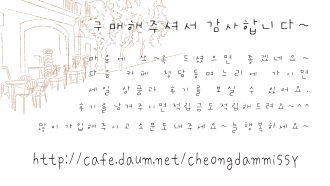 구매해주셔서 감사합니다~
마음에 쏘옥 드셨으면 좋겠네요~
다음 카페 청담동며느리에 가이면
세일 상품과 후기를 보실 수 있어요.
후기를 남겨주시면 적립금도 적립해드려요~^^
많이 가입해주시고 소문도 내주세요~늘 행복하세요~
http://cafe.daum.net/cheongdammissy